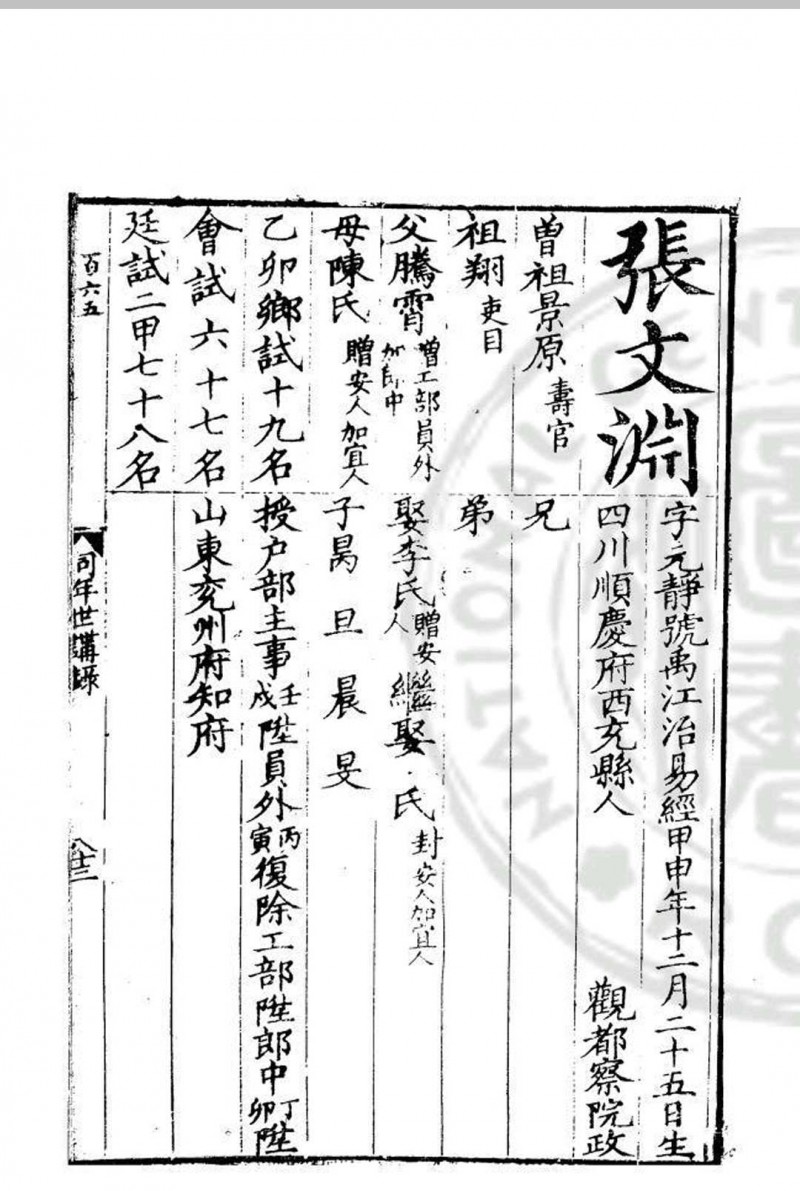 張文淵
字元靜號禹江治易經甲申年十二月二十五日生
四川順慶府西充縣人 觀都察院政
曾祖景原 壽官
兄
祖翔 吏目
弟
父騰霄 贈工部員外加郎中
娶李氏 贈安人 繼娶 氏 封安人加宜人
母陳氏 贈安人加宜人
子昺 旦 晨 旻
乙卯鄉試十九名
授户部主事 壬戌 陞員外 丙寅 復除工部陞郎中 丁卯 陞
會試六十七名
山東兖州府知府
廷試二甲七十八名
百六五
同年世講録
八十二
NATIONAL CENT